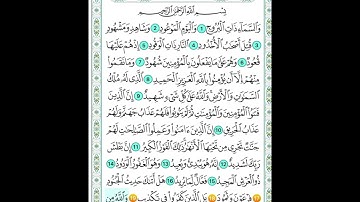 بِسْمِ اللَّهِ الرَّحْمَٰنِ الرَّحِيمِ
وَالسَّمَاءِ ذَاتِ الْبُرُوجِ 1 وَالْيَوْمِ الْمَوْعُودِ 2 وَشَاهِدٍ وَمَشْهُودٍ
3 قُتِلَ أَصْحَابُ الْأُخْدُودِ 4 النَّارِ ذَاتِ الْوَقُودِ 5 إِذْ هُمْ عَلَيْهَا
قُعُودٌ 6 وَهُمْ عَلَىٰ مَا يَفْعَلُونَ بِالْمُؤْمِنِينَ شُهُودٌ 7 وَمَا نَقَمُوا
مِنْهُمْ إِلَّا أَنْ يُؤْمِنُوا بِاللَّهِ الْعَزِيزِ الْحَمِيدِ 8 الَّذِي لَهُ مُلْكُ
السَّمَاوَاتِ وَالْأَرْضِ وَاللَّهُ عَلَىٰ كُلِّ شَيْءٍ شَهِيدٌ 9 إِنَّ الَّذِينَ
فَتَنُوا الْمُؤْمِنِينَ وَالْمُؤْمِنَاتِ ثُمَّ لَمْ يَتُوبُوا فَلَهُمْ عَذَابُ جَهَنَّمَ وَلَهُمْ
عَذَابُ الْحَرِيقِ 10 إِنَّ الَّذِينَ آمَنُوا وَعَمِلُوا الصَّالِحَاتِ لَهُمْ
جَنَّاتٌ تَجْرِي مِنْ تَحْتِهَا الْأَنْهَارُ ذَٰلِكَ الْفَوْزُ الْكَبِيرُ 11 إِنَّ بَطْشَ
رَبِّكَ لَشَدِيدٌ 12 إِنَّهُ هُوَ يُبْدِئُ وَيُعِيدُ 13 وَهُوَ الْغَفُورُ الْوَدُودُ 14
ذُو الْعَرْشِ الْمَجِيدُ 15 فَعَّالٌ لِمَا يُرِيدُ 16 هَلْ أَتَاكَ حَدِيثُ الْجُنُودِ
17 فِرْعَوْنَ وَثَمُودَ 18 بَلِ الَّذِينَ كَفَرُوا فِي تَكْذِيبٍ 19 وَاللَّهُ مِنْ